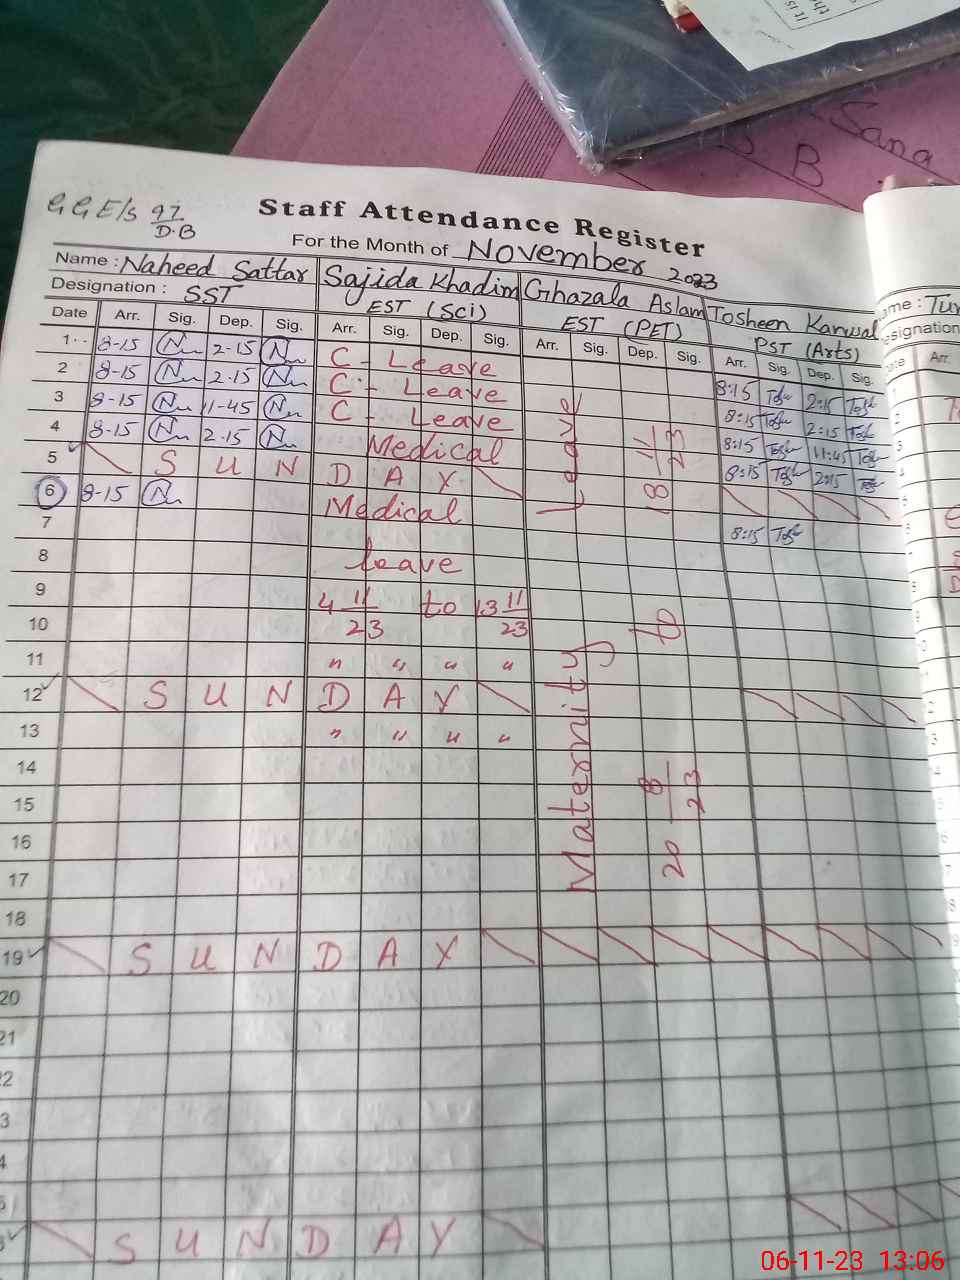 It is
th
Sana
B
G G E/S 97/D.B
Staff Attendance Register
For the Month of November 2023
Name : Naheed Sattar Sajida Khadim Ghazala Aslam Tosheen Kanwal
Designation : SST EST (Sci) EST (PET) PST (Arts)
Date Arr. Sig. Dep. Sig. Arr. Sig. Dep. Sig. Arr. Sig. Dep. Sig. Arr. Sig. Dep. Sig.
1 8-15 N 2-15 N C - Leave 8:15 2:15
2 8-15 N 2.15 N C - Leave 8:15 2:15
3 8-15 N 11-45 N C - Leave 8:15 11:45
4 8-15 N 2.15 N Medical 8:15 2:15
5 S U N D A Y
6 8-15 N Medical 8:15
7
8 Leave
9 4 11/23 to 13 11/23
10
11 " " " "
12 S U N D A Y
13 " " " "
14
15
16
17
18
19 S U N D A Y
20
21
22
S U N D A Y
Maternity Leave
20 8/23 to 18 11/23
ame : Tun
esignation
ate Arr.
06-11-23 13:06